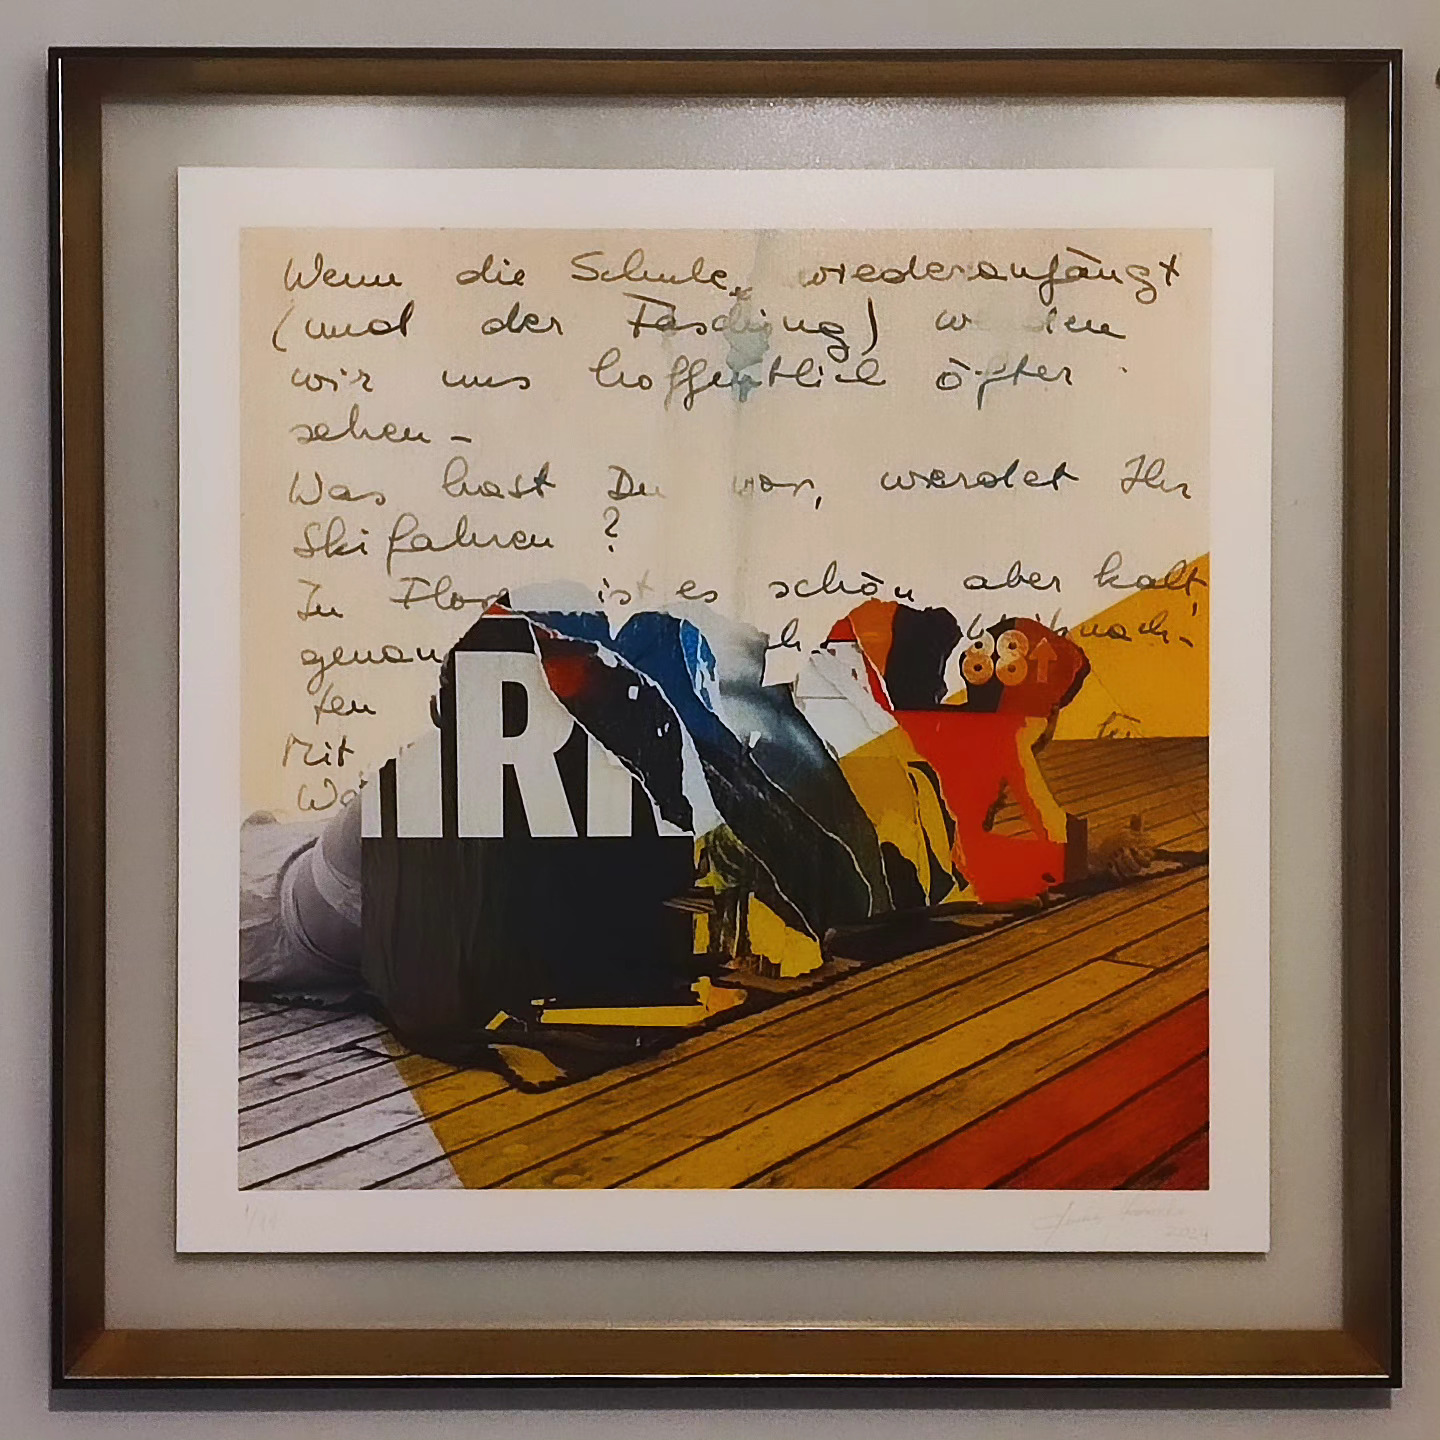 Wenn die Schule wiederanfängt
(und der Fasching) werden
wir uns hoffentlich öfter
sehen –
Was hast Du vor, werdet Ihr
Skifahren ?
In Flor ist es schön aber kalt,
genau h. Weihnach-
ten
Mit
Wä
RR
88
88↑
1/
2024